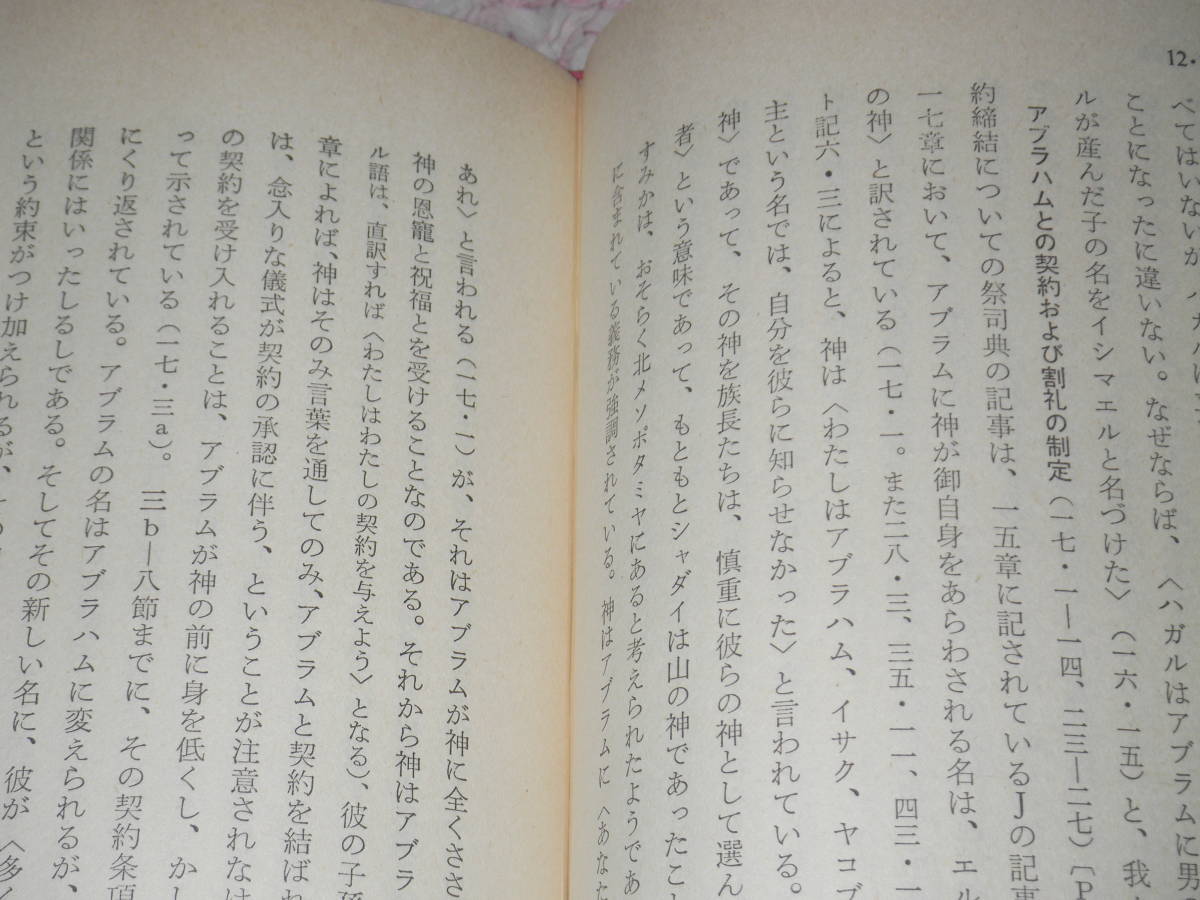 12・
べてはいない
ことになったに違いない。なぜならば、〈ハガルはアブラムに男
ルが産んだ子の名をイシマエルと名づけた〉（一六・一五）と、我
アブラハムとの契約および割礼の制定（一七・一―一四、二三―二七）〔P
約締結についての祭司典の記事は、一五章に記されているJの記事
一七章において、アブラムに神が御自身をあらわされる名は、エル
の神〉と訳されている（一七・一。また二八・三、三五・一一、四三・一
ト記六・三によると、神は〈わたしはアブラハム、イサク、ヤコブ
主という名では、自分を彼らに知らせなかった〉と言われている。
神〉であって、その神を族長たちは、慎重に彼らの神として選ん
者〉という意味であって、もともとシャダイは山の神であったこ
すみかは、おそらく北メソポタミヤにあると考えられたようであ
に含まれている義務が強調されている。神はアブラムに〈あなた
あれ〉と言われる（一七・一）が、それはアブラムが神に全くささ
神の恩寵と祝福とを受けることなのである。それから神はアブラ
ル語は、直訳すれば〈わたしはわたしの契約を与えよう〉となる）、彼の子孫
章によれば、神はそのみ言葉を通してのみ、アブラムと契約を結ばれ
は、念入りな儀式が契約の承認に伴う、ということが注意されな
の契約を受け入れることは、アブラムが神の前に身を低くし、か
って示されている（一七・三a）。 三b―八節までに、その契約条項
にくり返されている。アブラムの名はアブラハムに変えられるが、
関係にはいったしるしである。そしてその新しい名に、彼が〈多く
という約束がつけ加えられるが、